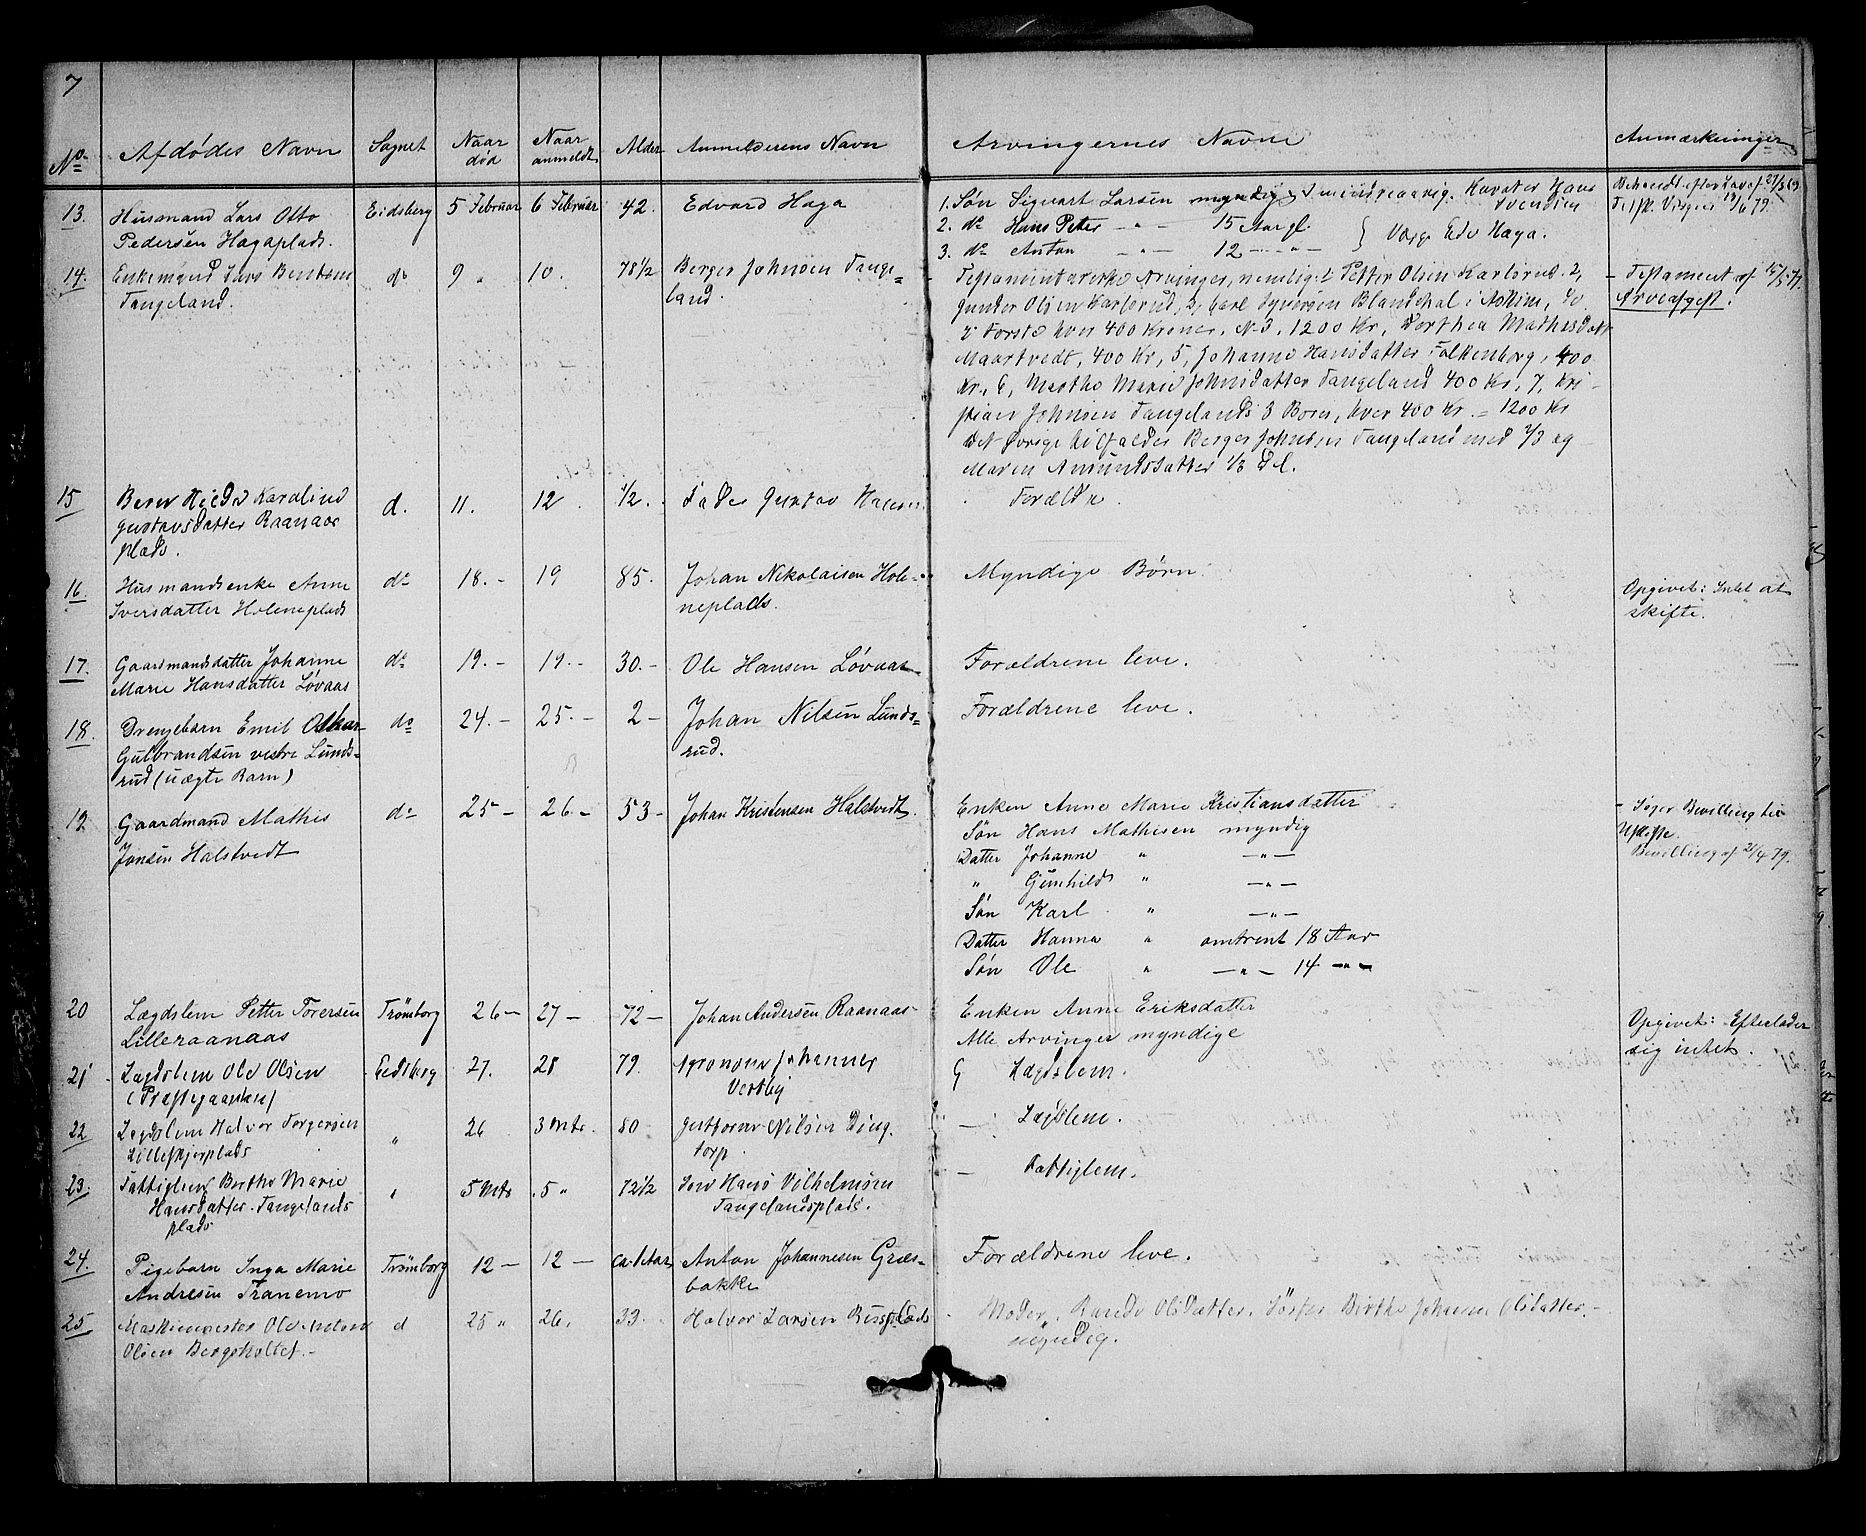 7
No Afdødes Navn Sognet Naar død Naar anmeldt Alder Anmelderens Navn Arvingernes Navne Anmærkninger
13. Husmand Lars Otto Eidsberg 5 Februar 6 Februar 42. Edvard Haga 1. Søn Sigvart Larsen myndig mindreaarig. Kurator Hans
Pedersen Hagaplads. 2. do Hans Peter - " - 15 Aar gl. } Værge Edv Haga.
3. do Anton - " - 12 - " -
14. Enkemand Lars Tangeland. do 9 " 10. 78 1/2 Berger Johnsen Tange=
land. Testamentariske Arvinger, nemlig: 1 Petter Olsen Karlsrud. 2, - Testament af
Gunder Olsen Karlsrud, 3, Carl Syversen i Askim, de Arveafgift.
2 Første hver 400 Kroner, No 3, 1200 Kr, Dorthea Mathisdatt
Maartvedt, 400 Kr, 5, Johanne Hansdatter Falkenborg, 400
Kr., 6, Marthe Marie Johnsdatter Tangeland 400 Kr, 7, Kri-
stian Johnsen Tangelands 3 Børn, hver 400 Kr. = 1200 Kr
det Øvrige tilfalder Berger Johnsen Tangeland med 2/3 og
Maren Amundsdatter 1/3 Del.
15 Barn Karoline d. 11. 12 1/2. Fader Gustav Hansen Forældre
Gustavsdatter Raanaas
plads.
16. Husmandsenke Anne do 18. - 19 85. Johan Nikolaisen Hole= Myndige Børn. Opgivet: Intet at
Iversdatter Holeneplads neplads. skifte.
17. Gaardmandsdatter Johanne do 19. - 19. - 30. - Ole Hansen Løvaas Forældrene leve.
Marie Hansdatter Løvaas
18. Drengebarn Emil Oskar do 24. - 25. - 2 - Johan Nilsen Lunds= Forældrene leve.
Gulbrandsen vestre Lunds= rud.
rud (uægte Barn)
19. Gaardmand Mathis do 25 - 26 - 53 - Johan Kristensen Halstvedt. Enken Anne Marie Kristiansdatter - Søger Bevilling til
Jonsen Halstvedt Søn Hans Mathisen myndig Uskifte.
Datter Johanne " - " - Bevilling af 21/4 79.
" Gunhild " - " -
Søn Karl " - " -
Datter Hanna " omtrent 18 Aar
Søn Ole " - " - 14 - " -
20 Lægdslem Petter Torersen Trømborg 26 - 27 - 72 - Johan Andersen Raanaas Enken Anne Eriksdatter Opgivet: Efterlader
Lilleraanaas Alle Arvinger myndige sig intet.
21 Lægdslem Ole Olsen Eidsberg 27. 28 79. Agronom Johannes Lægdslem.
(Præstegaarden) Vestby
22 Lægdslem Halvor Torgersen " 26 3 Mts. 80 Nilsen Ding Lægdslem.
torp.
23. Fattiglem Berthe Marie " 5 Mts 5 " 72 1/2 Hans Vilhelmsen - Fattiglem.
Hansdatter Tangelands Tangelandsplads.
plads
24. Pigebarn Inga Marie Trømborg 12 - 12 - ca. 1 Aar Anton Johannesen Græs= Forældrene leve.
Andresen Tranemo bakke
25 Ole Anton d 25 " 26. 33. Halvor Larsen Moder, Olsdatter, Søster Birthe Johanne Olsdatter -
Olsen Bergsholtet. - myndig.